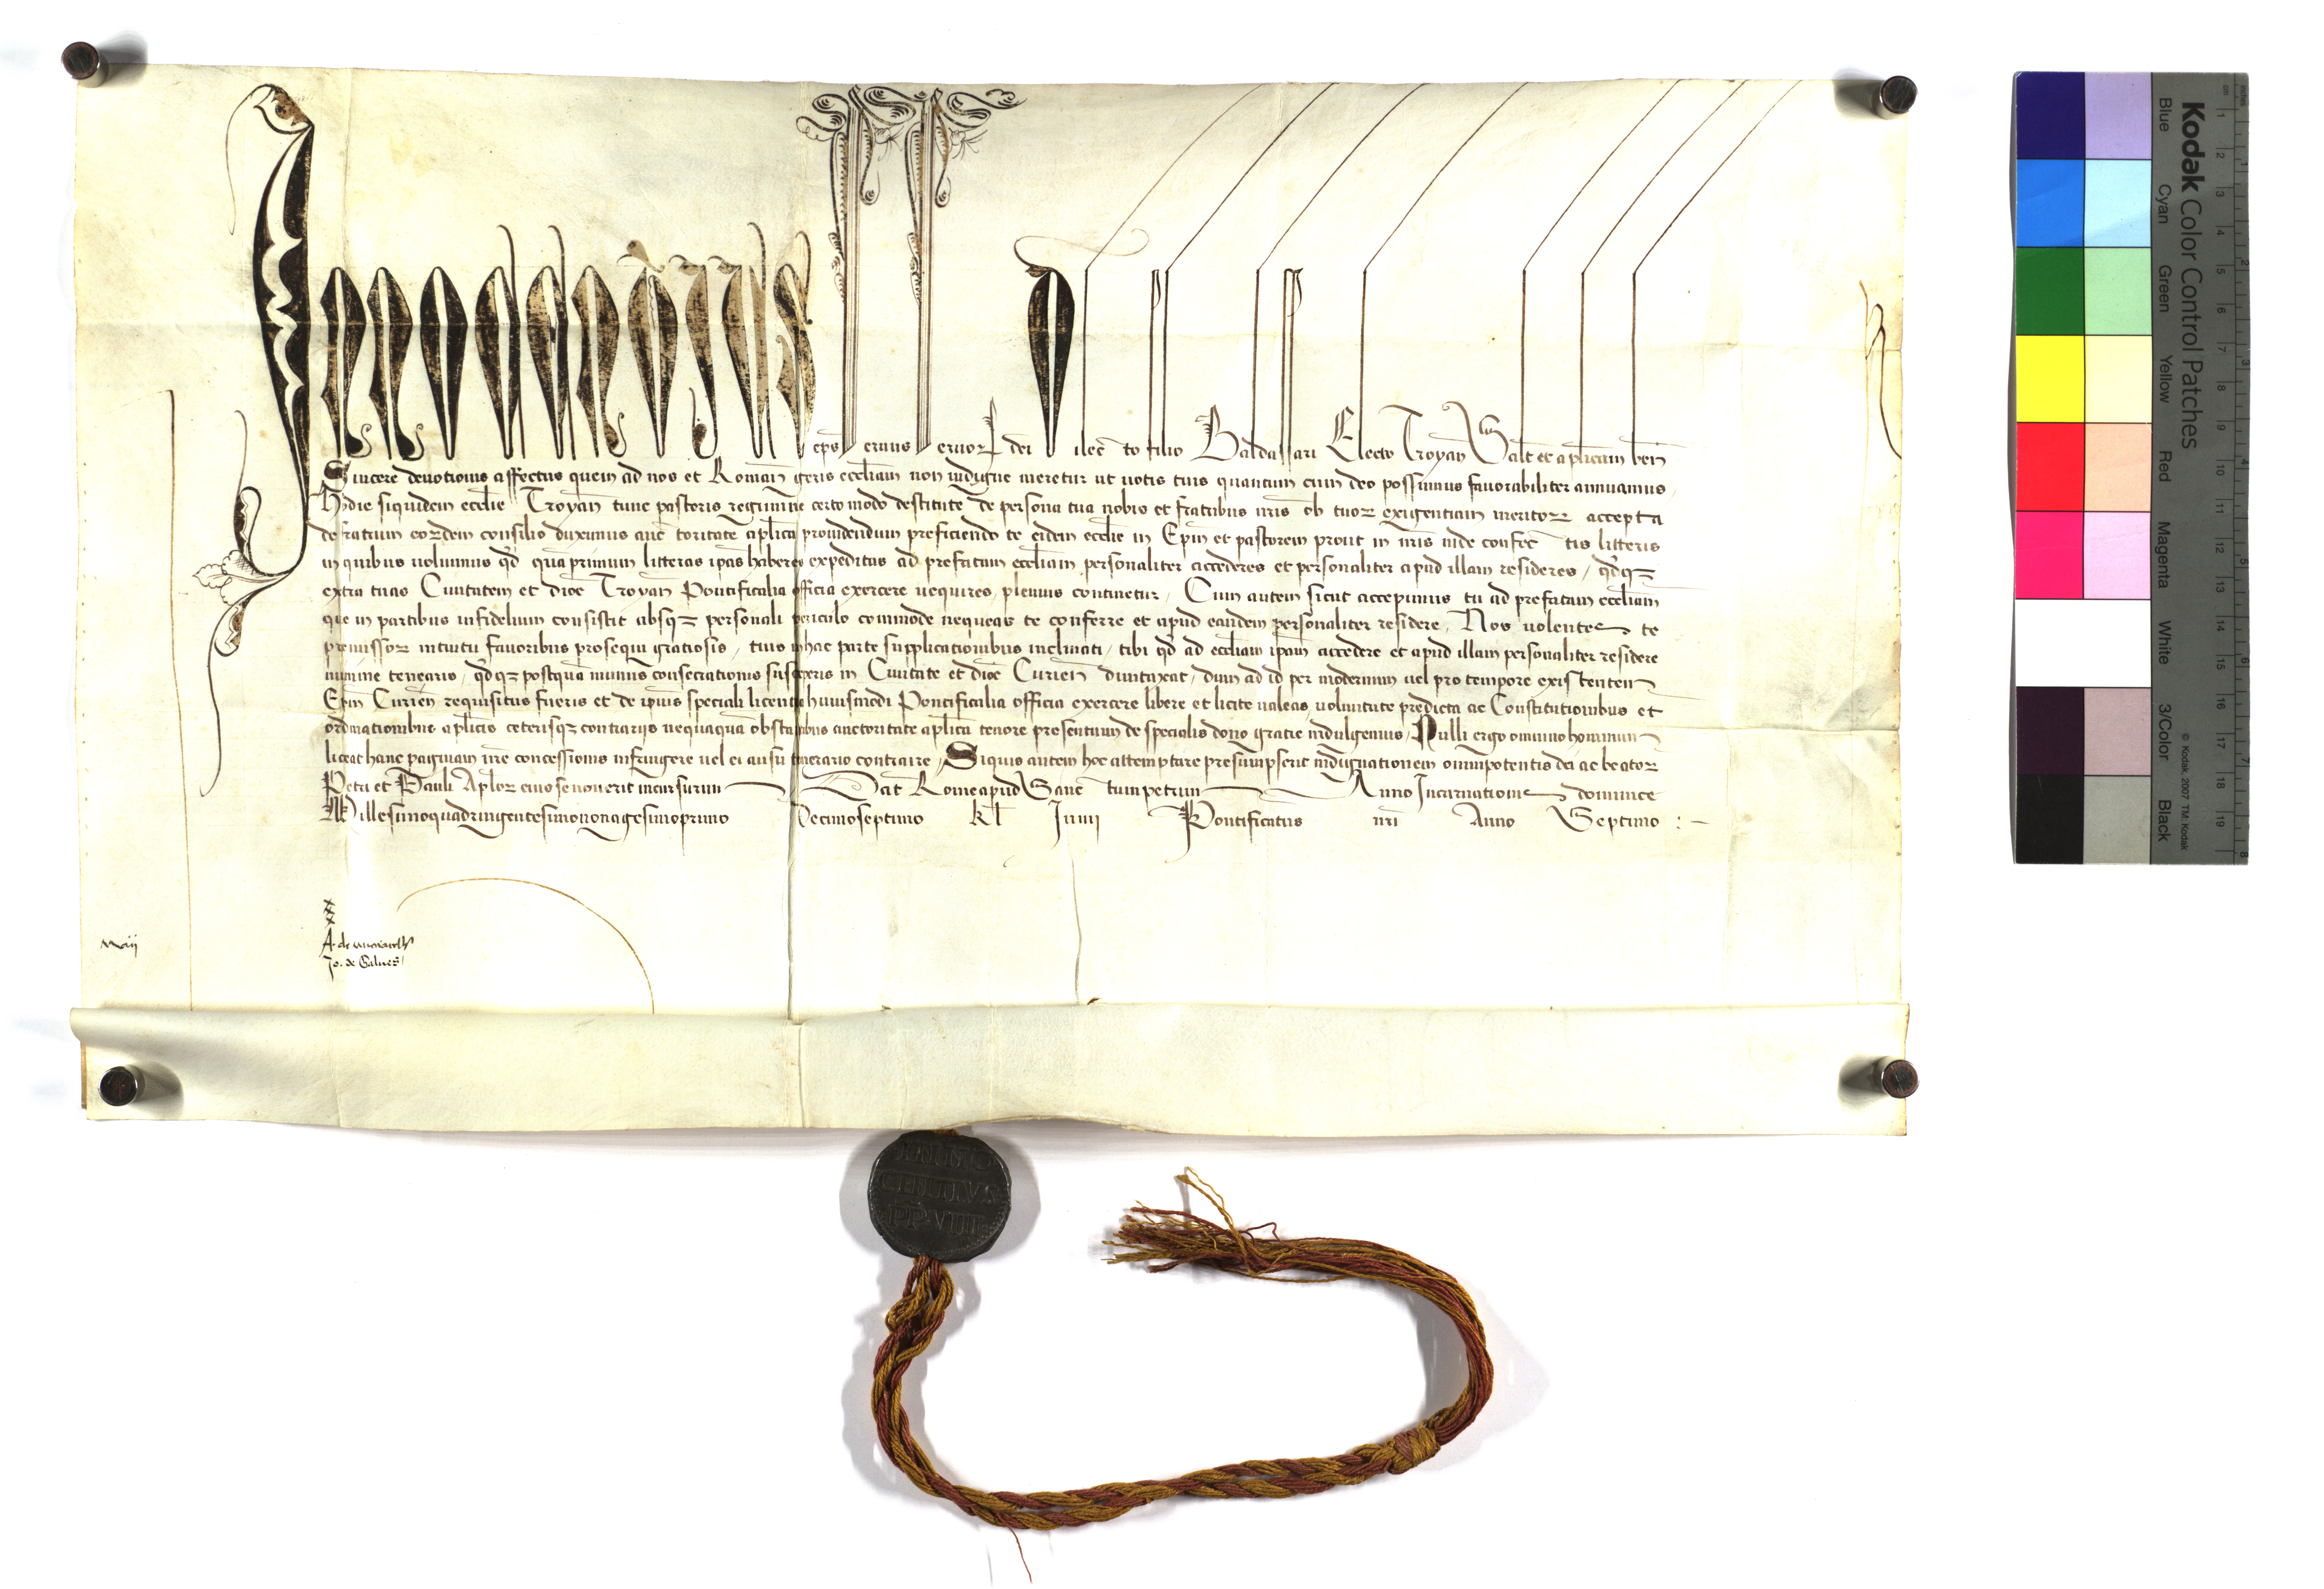 Innocentius eps seruus seruor dei Dilecto filio Baldassari Electo Troyan Salt et aplicam ben
Sincere deuotionis affectus quem ad nos et Roman geris eccliam non indigne meretur ut uotis tuis quantum cum deo possumus fauorabiliter annuamus
Hodie siquidem ecclie Troyan tunc pastoris regimine certo modo destitute de persona tua nobis et fratribus nris ob tuor exigentiam meritor accepta
de fratrum eordem consilio duximus auctoritate aplica prouidendum preficiendo te eidem ecclie in Epm et pastorem prout in nris inde confectis litteris
in quibus uolumus qd quamprimum litteras ipas haberes expeditas ad prefatam eccliam personaliter accederes et personaliter apud illam resideres / qdqz
extra tuas Ciuitatem et dioc Troyan Pontificalia officia exercere nequires plenius continetur / Cum autem sicut accepimus tu ad prefatam eccliam
que in partibus infidelium consistit absqz personali periculo commode nequeas te conferre et apud eandem personaliter residere / Nos uolentes te
premissor intuitu fauoribus prosequi gratiosis / tuis in hac parte supplicationibus inclinati / tibi qd ad eccliam ipam accedere et apud illam personaliter residere
minime tenearis / qdqz postquam munus consecrationis susceperis in Ciuitate et dioc Curien duntaxat / dum ad id per modernum uel pro tempore existentem
Epm Curien requisitus fueris et de ipius speciali licentia huiusmodi Pontificalia officia exercere libere et licite ualeas uoluntate predicta ac Constitutionibus et
ordinationibus aplicis ceterisqz contrarijs nequaquam obstantibus auctoritate aplica tenore presentium de specialis dono gratie indulgemus / Nulli ergo omnino hominum
liceat hanc paginam nre concessionis infringere uel ei ausu temerario contraire / Siquis autem hoc attemptare presumpserit indignationem omnipotentis dei ac beator
Petri et Pauli Aplor eius se nouerit incursurum Dat Rome apud Sanctum petrum Anno Incarnationis dominice
Millesimoquadringentesimononagesimoprimo Decimoseptimo kl Junij Pontificatus nri Anno Septimo : -
Maij
xxx
A. de
Jo. de Galues
INNO
CENTIVS
PP VIII
Kodak Color Control Patches
Blue Cyan Green Yellow Red Magenta White 3/Color Black
© Kodak, 2007 TM: Kodak
cm 1 2 3 4 5 6 7 8 9 10 11 12 13 14 15 16 17 18 19
inches 1 2 3 4 5 6 7 8